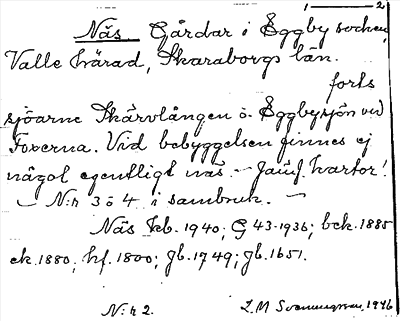 1 — 2
Näs Gårdar i Eggby socken,
Valle härad, Skaraborgs län.
forts
sjöarne Skärvlången o. Eggbysjön vid
Foxerna. Vid bebyggelsen finnes ej
något egentligt näs. — Jämf. kartor!
— N:r 3 o 4 i sambruk. —
Näs kb. 1940; G 43-1936; bek. 1885
ek. 1880; hf. 1800; gb. 1749; gb. 1651.
N:r 2. L M Svenungsson, 1946